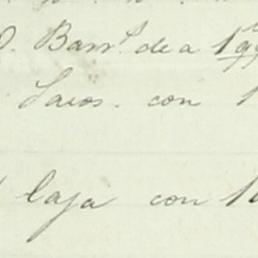 Barr.s de a 1
Sacos. con 1
Caja con 1